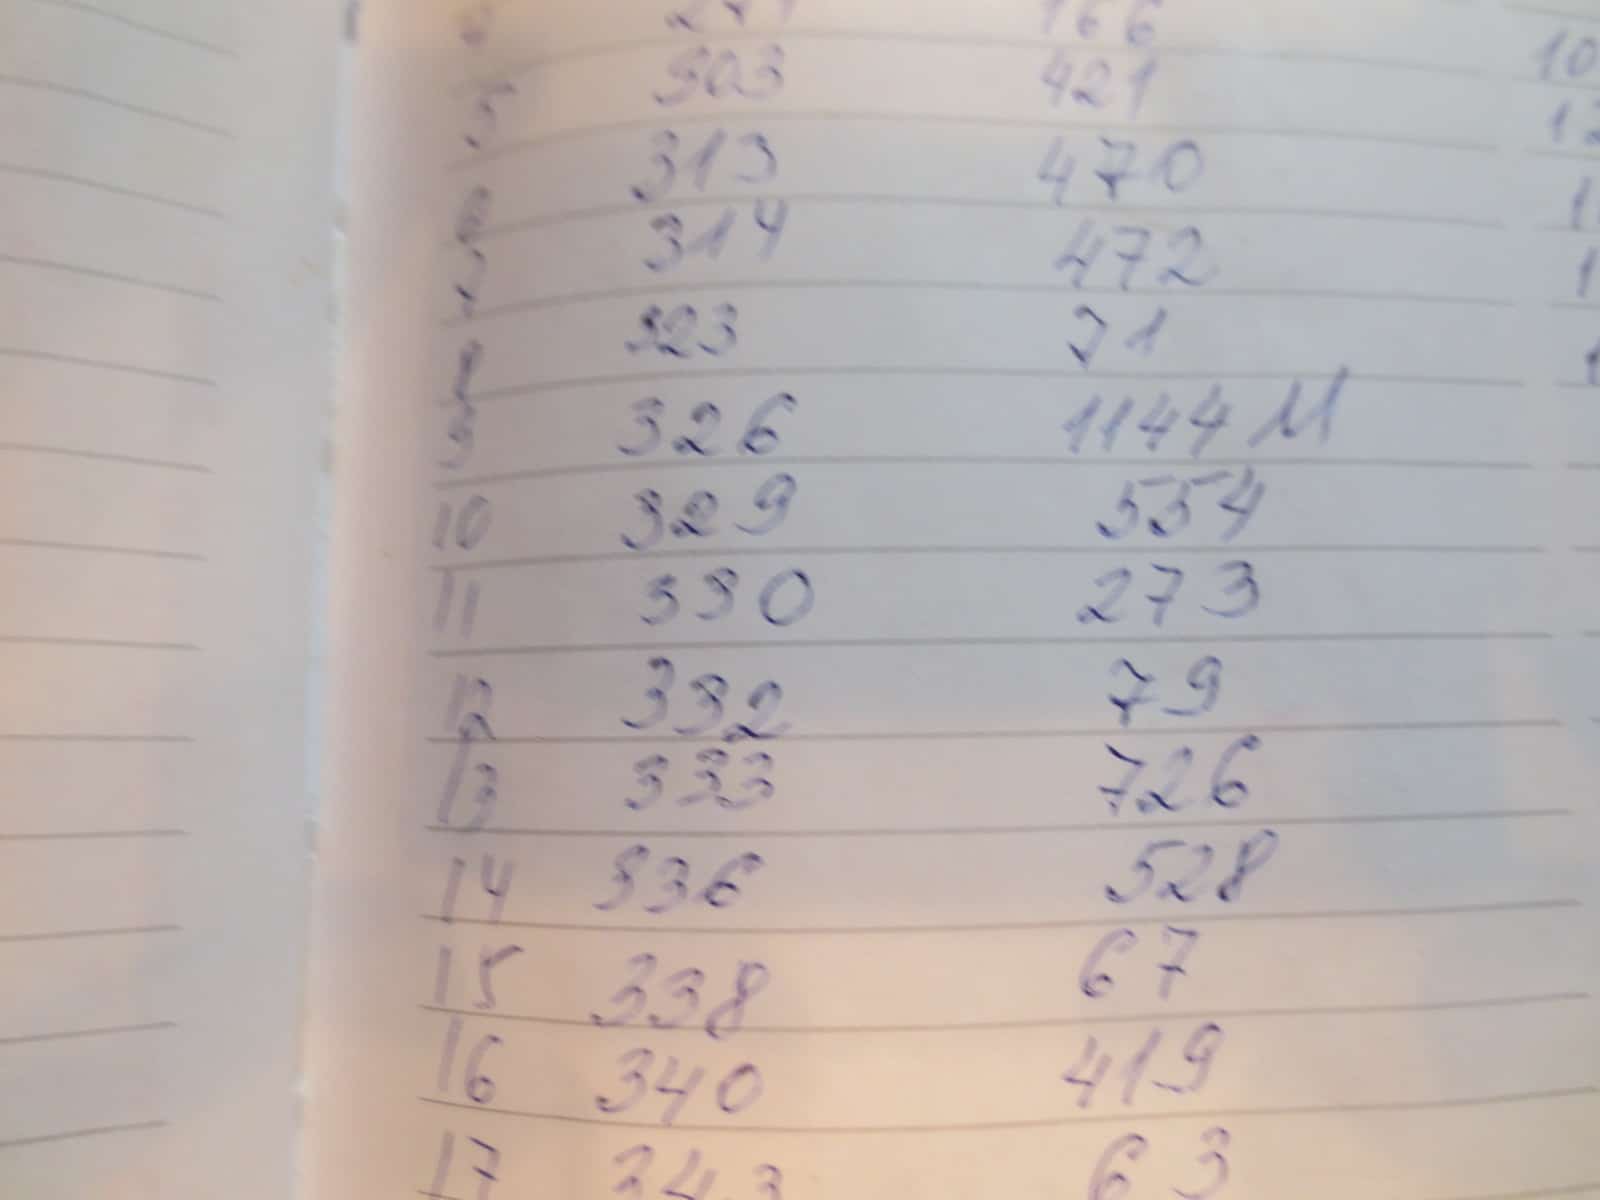 166
5 303 421 10
313 470 12
314 472
323 71
9 326 1144 М
10 329 554
11 330 273
12 332 79
13 333 726
14 336 528
15 338 67
16 340 419
17 343 63